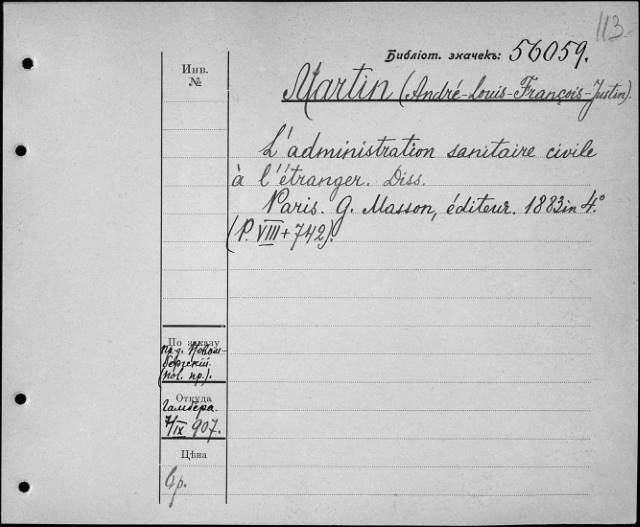 113.
Библіот. значекъ: 56059.
Инв.
№
Martin (André-Louis-François-Justin).
L'administration sanitaire civile
à l'étranger. Diss.
Paris. G. Masson, éditeur. 1883 in 4.°
(P. VIII + 742).
По заказу
Откуда
7/IX 907.
Цѣна